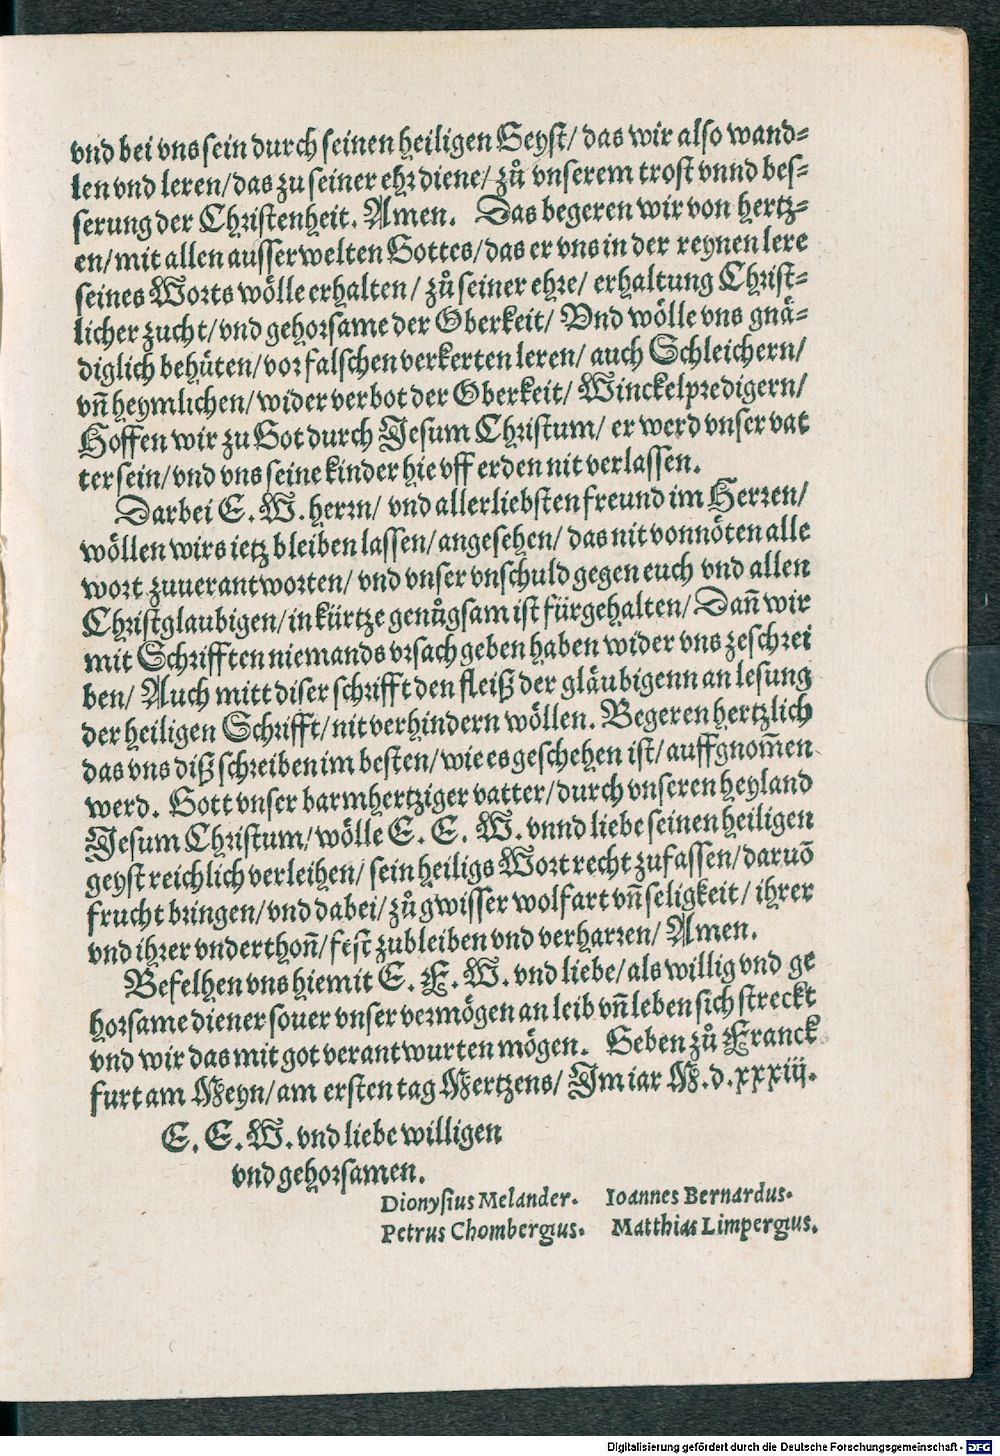 vnd bei vns sein durch seinen heiligen Geyst/ das wir also wand⸗
len vnd leren/ das zu seiner ehr diene/ zů vnserem trost vnnd bes⸗
serung der Christenheit. Amen. Das begeren wir von hertz⸗
en/ mit allen ausserwelten Gottes/ das er vns in der reynen lere
seines Worts wölle erhalten/ zů seiner ehre/ erhaltung Christ⸗
licher zucht/ vnd gehorsame der Oberkeit/ Vnd wölle vns gnä⸗
diglich behüten/ vor falschen verkerten leren/ auch Schleichern/
vñ heymlichen/ wider verbot der Oberkeit/ Winckelpredigern/
Hoffen wir zu Got durch Jesum Christum/ er werd vnser vat
ter sein/ vnd vns seine kinder hie vff erden nit verlassen.
Darbei E. W. herrn/ vnd allerliebsten freund im Herren/
wöllen wirs ietz bleiben lassen/ angesehen/ das nit vonnöten alle
wort zuuerantworten/ vnd vnser vnschuld gegen euch vnd allen
Christglaubigen/ in kürtze genůgsam ist fürgehalten/ Dañ wir
mit Schrifften niemands vrsach geben haben wider vns zeschrei
ben/ Auch mitt diser schrifft den fleiß der gläubigenn an lesung
der heiligen Schrifft/ nit verhindern wöllen. Begeren hertzlich
das vns diß schreiben im besten/ wie es geschehen ist/ auffgnom̄en
werd. Gott vnser barmhertziger vatter/ durch vnseren heyland
Jesum Christum/ wölle E. E. W. vnnd liebe seinen heiligen
geyst reichlich verleihen/ sein heiligs Wort recht zufassen/ daruō
frucht bringen/ vnd dabei/ zů gwisser wolfart vñ seligkeit/ ihrer
vnd ihrer vnderthoñ/ fest zubleiben vnd verharren/ Amen.
Befelhen vns hiemit E. F. W. vnd liebe/ als willig vnd ge
horsame diener souer vnser vermögen an leib vñ leben sich streckt
vnd wir das mit got verantwurten mögen. Geben zů Franck
furt am Meyn/ am ersten tag Mertzens/ Im iar M. d. xxxiij.
E. E. W. vnd liebe willigen
vnd gehorsamen.
Dionysius Melander. Ioannes Bernardus.
Petrus Chombergius. Matthias Limpergius.
Digitalisierung gefördert durch die Deutsche Forschungsgemeinschaft - DFG